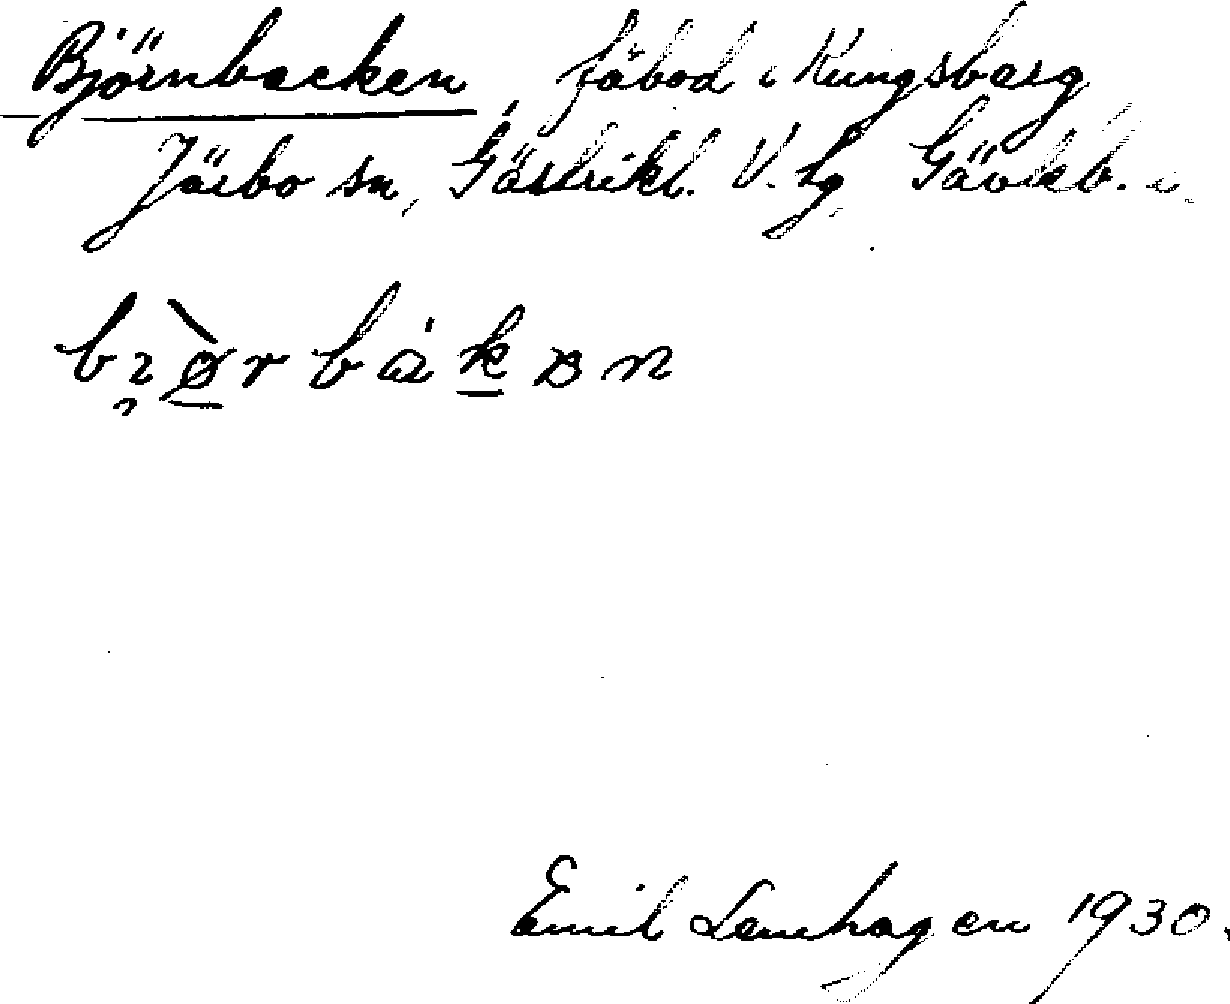 Björnbacken, fäbod i Kungsberg,
Järbo sn, Gästrikl. V. Lg Gävleb.
Emil Lenhagen 1930.